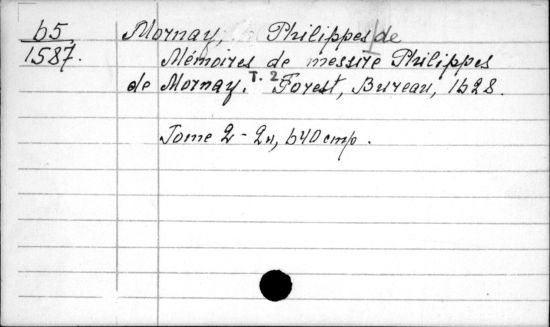 65
1587.
Mornay, Philippes de
Mémoires de messire Philippes
de Mornay. T. 2 Forest, Bureau, 1628.
Tome 2 - 2н, 640 стр.